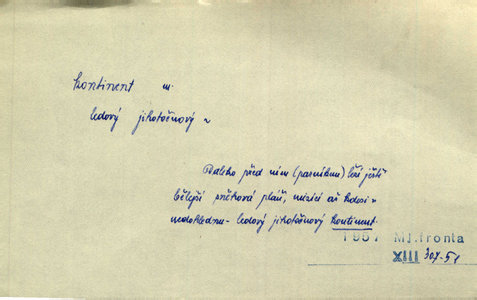 kontinent m.
ledový jihotočnový ~
Daleko před ním (parníkem) leží ještě
bělejší sněhová pláň, mizící až kdesi v
nedohlednu - ledový jihotočnový kontinent.
1957 Ml. fronta
XIII 307-51